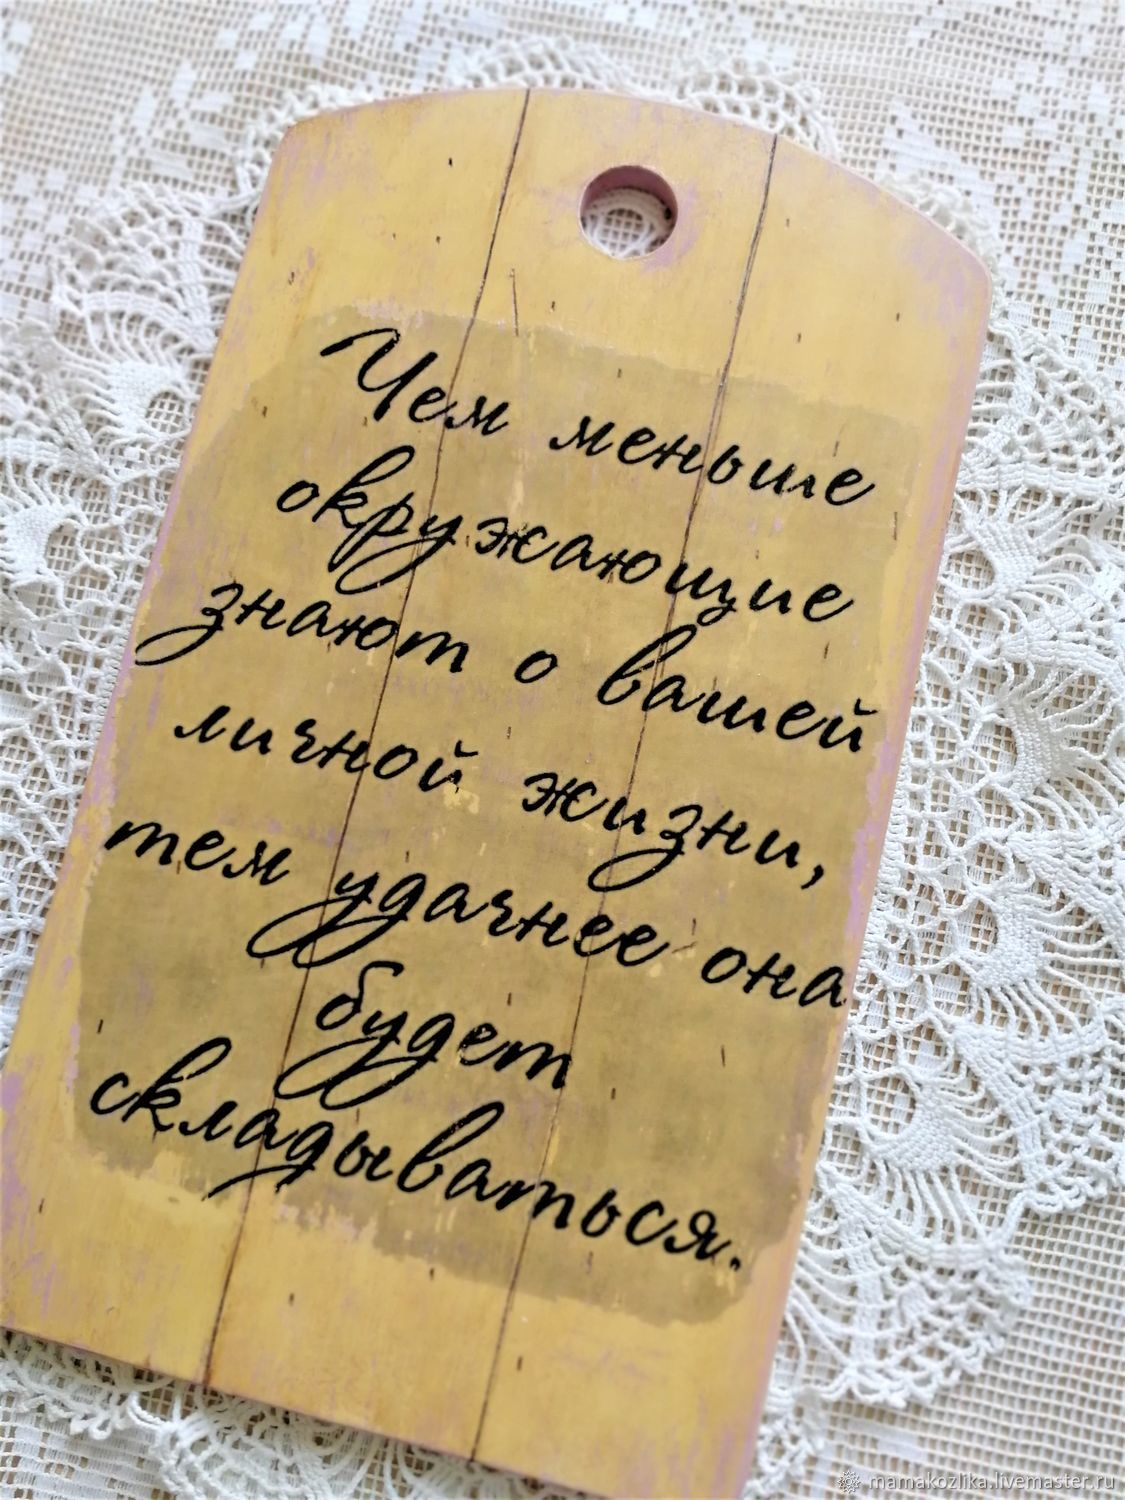 Чем меньше
окружающие
знают о вашей
личной жизни,
тем удачнее она
будет
складываться.
mamakozlika.livemaster.ru